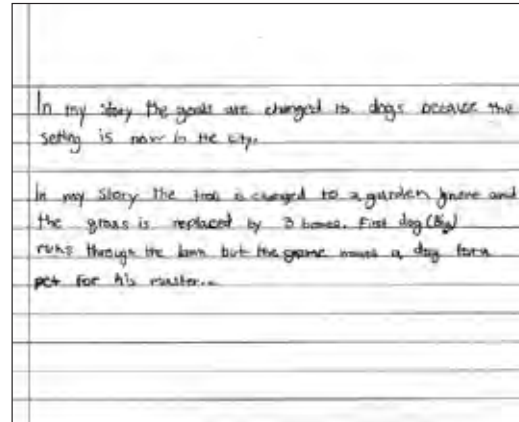 In my story the goats are changed to dogs because the
setting is now in the city.
In my story the troll is changed to a garden gnome and
the grass is replaced by 3 bones. First dog (Big)
runs through the lawn but the gnome wants a dog for a
pet for his master...